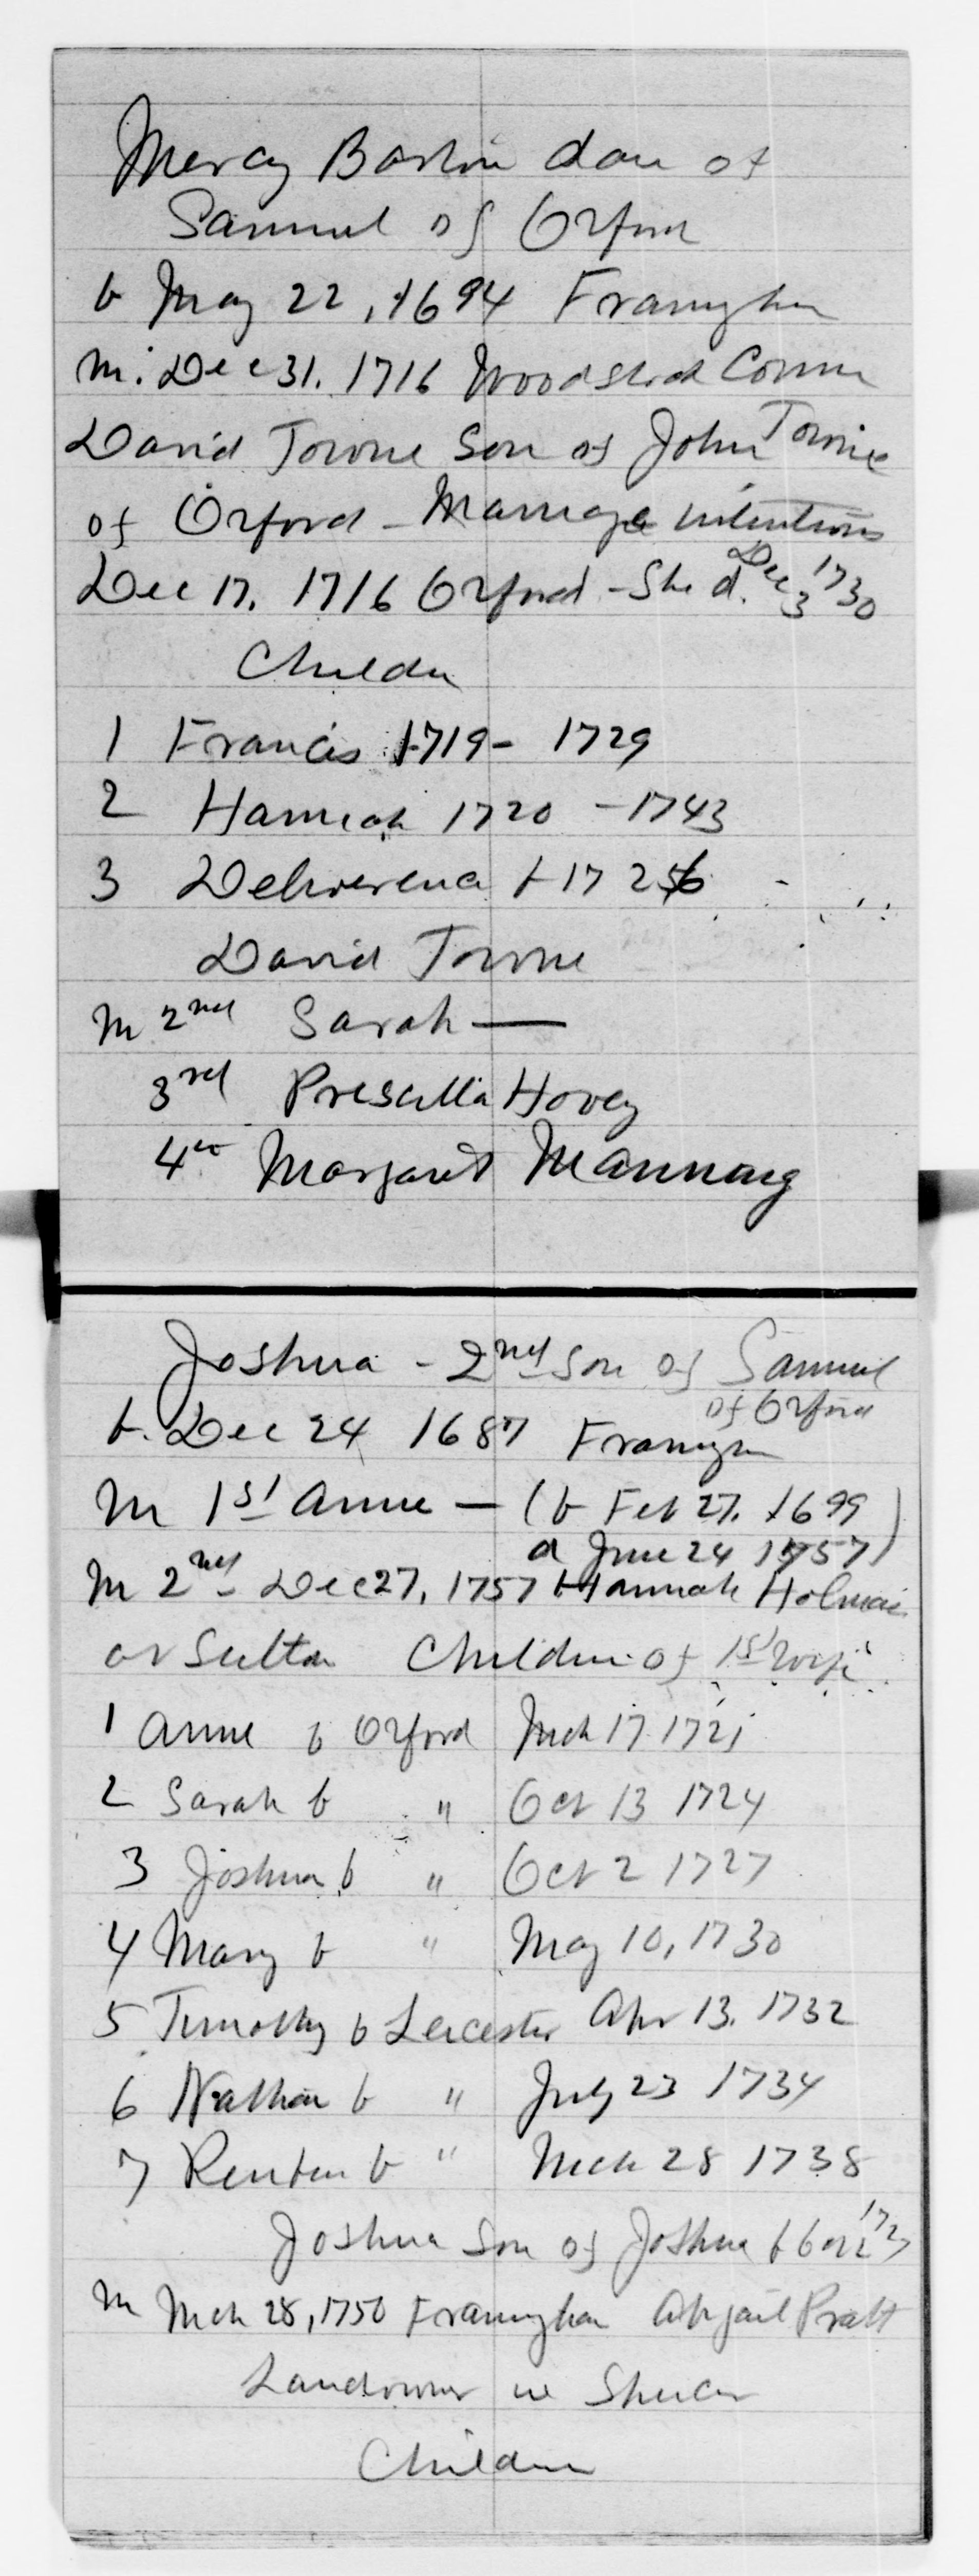 Mercy Barton dau of
Samuel of Oxford
b May 22, 1694 Framingham
m. Dec 31. 1716 Woodstock Conn
David Towne Son of John Towne
of Oxford - Marriage intentions
Dec 17. 1716 Oxford - She d. Dec 3 1730
Children
1 Francis 1719 - 1729
2 Hannah 1720 - 1743
3 Deliverence b 1726
David Towne
m 2nd Sarah —
3rd Prescilla Hovey
4th Margaret Manning
Joshua - 2nd son of Samuel
of Oxford
b. Dec 24 1687 Framingham
m 1st Anne — (b Feb 27. 1699
d June 24 1757)
m 2nd - Dec 27, 1757 Hannah Holman
or Sutton Children of 1st wife
1 Anne b Oxford Mch 17 1721
2 Sarah b " Oct 13 1724
3 Joshua b " Oct 2 1727
4 Mary b " May 10, 1730
5 Timothy b Leicester Apr 13. 1732
6 Nathan b " July 23 1734
7 Reuben b " Mch 28 1738
Joshua Son of Joshua b Oct 2 1727
m Mch 28, 1750 Framingham Abigail Pratt
Landowner in Spencer
Children